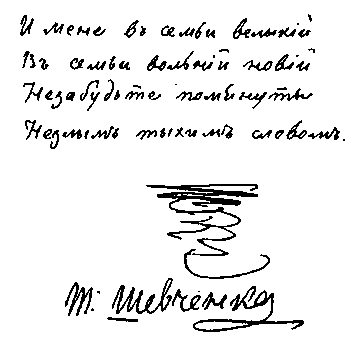 И мене въ семьи велыкій
Въ семьи вольній новій
Незабудьте помьянуты
Незлымъ тыхимъ словомъ.
Т. Шевченко